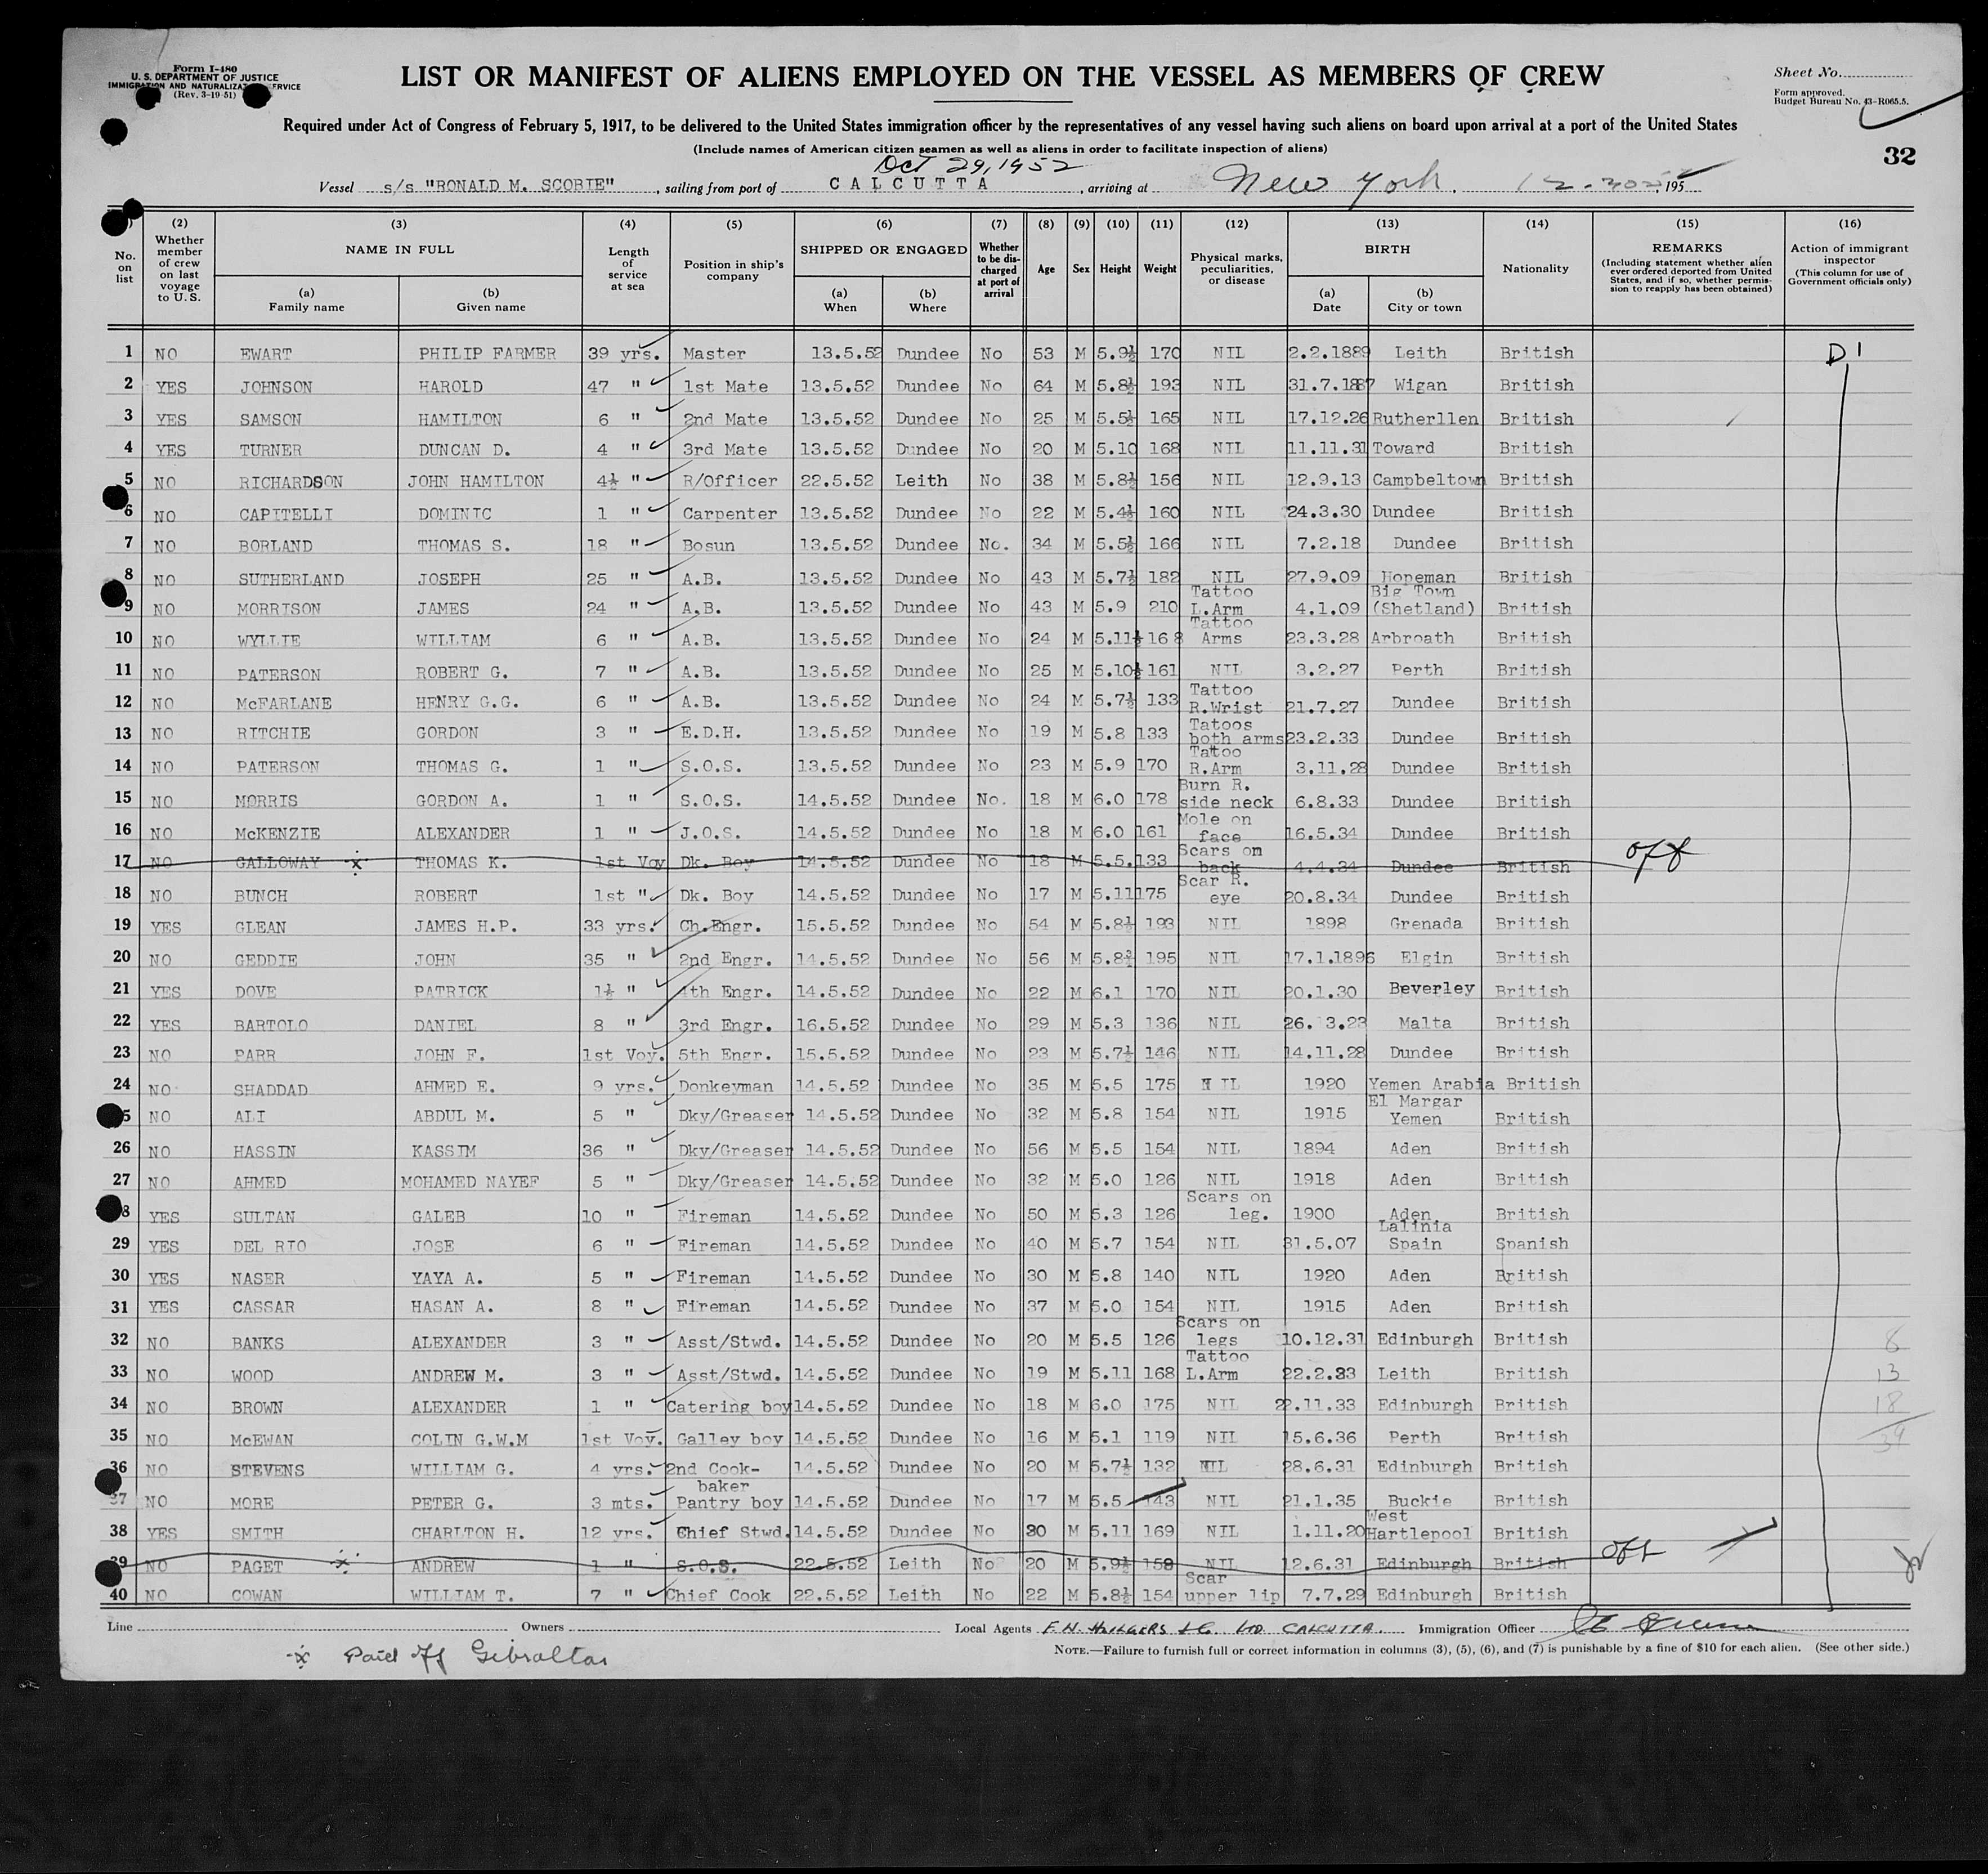 Form I-480
U. S. DEPARTMENT OF JUSTICE
IMMIGRATION AND NATURALIZATION SERVICE
(Rev. 3-19-51)
LIST OR MANIFEST OF ALIENS EMPLOYED ON THE VESSEL AS MEMBERS OF CREW
Sheet No.
Form approved.
Budget Bureau No. 43-R065.5.
Required under Act of Congress of February 5, 1917, to be delivered to the United States immigration officer by the representatives of any vessel having such aliens on board upon arrival at a port of the United States
(Include names of American citizen seamen as well as aliens in order to facilitate inspection of aliens)
32
Oct 29, 1952
Vessel s/s "RONALD M. SCOBIE", sailing from port of CALCUTTA, arriving at New York, 195
(2) (3) (4) (5) (6) (7) (8) (9) (10) (11) (12) (13) (14) (15) (16)
No. on list
Whether member of crew on last voyage to U. S.
NAME IN FULL
(a) Family name
(b) Given name
Length of service at sea
Position in ship's company
SHIPPED OR ENGAGED
(a) When
(b) Where
Whether to be discharged at port of arrival
Age
Sex
Height
Weight
Physical marks, peculiarities, or disease
BIRTH
(a) Date
(b) City or town
Nationality
REMARKS
(Including statement whether alien ever ordered deported from United States, and if so, whether permission to reapply has been obtained)
Action of immigrant inspector
(This column for use of Government officials only)
1 NO EWART PHILIP FARMER 39 yrs. Master 13.5.52 Dundee No 53 M 5.9½ 170 NIL 2.2.1889 Leith British D1
2 YES JOHNSON HAROLD 47 " 1st Mate 13.5.52 Dundee No 64 M 5.8½ 193 NIL 31.7.1887 Wigan British
3 YES SAMSON HAMILTON 6 " 2nd Mate 13.5.52 Dundee No 25 M 5.5½ 165 NIL 17.12.26 Rutherllen British
4 YES TURNER DUNCAN D. 4 " 3rd Mate 13.5.52 Dundee No 20 M 5.10 168 NIL 11.11.31 Toward British
5 NO RICHARDSON JOHN HAMILTON 4½ " R/Officer 22.5.52 Leith No 38 M 5.8½ 156 NIL 12.9.13 Campbeltown British
6 NO CAPITELLI DOMINIC 1 " Carpenter 13.5.52 Dundee No 22 M 5.4½ 160 NIL 24.3.30 Dundee British
7 NO BORLAND THOMAS S. 18 " Bosun 13.5.52 Dundee No. 34 M 5.5½ 166 NIL 7.2.18 Dundee British
8 NO SUTHERLAND JOSEPH 25 " A.B. 13.5.52 Dundee No 43 M 5.7½ 182 NIL 27.9.09 Hopeman British
9 NO MORRISON JAMES 24 " A.B. 13.5.52 Dundee No 43 M 5.9 210 Tattoo L.Arm 4.1.09 Big Town (Shetland) British
10 NO WYLLIE WILLIAM 6 " A.B. 13.5.52 Dundee No 24 M 5.11½ 168 Tattoo Arms 23.3.28 Arbroath British
11 NO PATERSON ROBERT G. 7 " A.B. 13.5.52 Dundee No 25 M 5.10½ 161 NIL 3.2.27 Perth British
12 NO McFARLANE HENRY G.G. 6 " A.B. 13.5.52 Dundee No 24 M 5.7½ 133 Tattoo R.Wrist 21.7.27 Dundee British
13 NO RITCHIE GORDON 3 " E.D.H. 13.5.52 Dundee No 19 M 5.8 133 Tatoos both arms 23.2.33 Dundee British
14 NO PATERSON THOMAS G. 1 " S.O.S. 13.5.52 Dundee No 23 M 5.9 170 Tattoo R.Arm 3.11.28 Dundee British
15 NO MORRIS GORDON A. 1 " S.O.S. 14.5.52 Dundee No. 18 M 6.0 178 Burn R. side neck 6.8.33 Dundee British
16 NO McKENZIE ALEXANDER 1 " J.O.S. 14.5.52 Dundee No 18 M 6.0 161 Mole on face 16.5.34 Dundee British
17 NO GALLOWAY x THOMAS K. 1st Voy Dk. Boy 14.5.52 Dundee No 18 M 5.5. 133 Scars on back 4.4.34 Dundee British off
18 NO BUNCH ROBERT 1st " Dk. Boy 14.5.52 Dundee No 17 M 5.11 175 Scar R. eye 20.8.34 Dundee British
19 YES GLEAN JAMES H.P. 33 yrs. Ch.Engr. 15.5.52 Dundee No 54 M 5.8½ 193 NIL 1898 Grenada British
20 NO GEDDIE JOHN 35 " 2nd Engr. 14.5.52 Dundee No 56 M 5.8¾ 195 NIL 17.1.1896 Elgin British
21 YES DOVE PATRICK 1½ " 4th Engr. 14.5.52 Dundee No 22 M 6.1 170 NIL 20.1.30 Beverley British
22 YES BARTOLO DANIEL 8 " 3rd Engr. 16.5.52 Dundee No 29 M 5.3 136 NIL 26. 3.23 Malta British
23 NO PARR JOHN F. 1st Voy. 5th Engr. 15.5.52 Dundee No 23 M 5.7½ 146 NIL 14.11.28 Dundee British
24 NO SHADDAD AHMED E. 9 yrs. Donkeyman 14.5.52 Dundee No 35 M 5.5 175 NIL 1920 Yemen Arabia British
25 NO ALI ABDUL M. 5 " Dky/Greaser 14.5.52 Dundee No 32 M 5.8 154 NIL 1915 El Margar Yemen British
26 NO HASSIN KASSIM 36 " Dky/Greaser 14.5.52 Dundee No 56 M 5.5 154 NIL 1894 Aden British
27 NO AHMED MOHAMED NAYEF 5 " Dky/Greaser 14.5.52 Dundee No 32 M 5.0 126 NIL 1918 Aden British
28 YES SULTAN GALEB 10 " Fireman 14.5.52 Dundee No 50 M 5.3 126 Scars on leg. 1900 Aden British
29 YES DEL RIO JOSE 6 " Fireman 14.5.52 Dundee No 40 M 5.7 154 NIL 31.5.07 Lalinia Spain Spanish
30 YES NASER YAYA A. 5 " Fireman 14.5.52 Dundee No 30 M 5.8 140 NIL 1920 Aden British
31 YES CASSAR HASAN A. 8 " Fireman 14.5.52 Dundee No 37 M 5.0 154 NIL 1915 Aden British
32 NO BANKS ALEXANDER 3 " Asst/Stwd. 14.5.52 Dundee No 20 M 5.5 126 Scars on legs 10.12.31 Edinburgh British 8
33 NO WOOD ANDREW M. 3 " Asst/Stwd. 14.5.52 Dundee No 19 M 5.11 168 Tattoo L.Arm 22.2.33 Leith British 13
34 NO BROWN ALEXANDER 1 " Catering boy 14.5.52 Dundee No 18 M 6.0 175 NIL 22.11.33 Edinburgh British 18
35 NO McEWAN COLIN G.W.M 1st Voy. Galley boy 14.5.52 Dundee No 16 M 5.1 119 NIL 15.6.36 Perth British 39
36 NO STEVENS WILLIAM G. 4 yrs. 2nd Cook-baker 14.5.52 Dundee No 20 M 5.7½ 132 NIL 28.6.31 Edinburgh British
37 NO MORE PETER G. 3 mts. Pantry boy 14.5.52 Dundee No 17 M 5.5 143 NIL 21.1.35 Buckie British
38 YES SMITH CHARLTON H. 12 yrs. Chief Stwd. 14.5.52 Dundee No 30 M 5.11 169 NIL 1.11.20 West Hartlepool British
39 NO PAGET x ANDREW 1 " S.O.S. 22.5.52 Leith No 20 M 5.9½ 158 NIL 12.6.31 Edinburgh British off
40 NO COWAN WILLIAM T. 7 " Chief Cook 22.5.52 Leith No 22 M 5.8½ 154 Scar upper lip 7.7.29 Edinburgh British
Line Owners Local Agents F.W. HEILGERS & Co LTD CALCUTTA. Immigration Officer
x Paid off Gibraltar
NOTE.—Failure to furnish full or correct information in columns (3), (5), (6), and (7) is punishable by a fine of $10 for each alien. (See other side.)